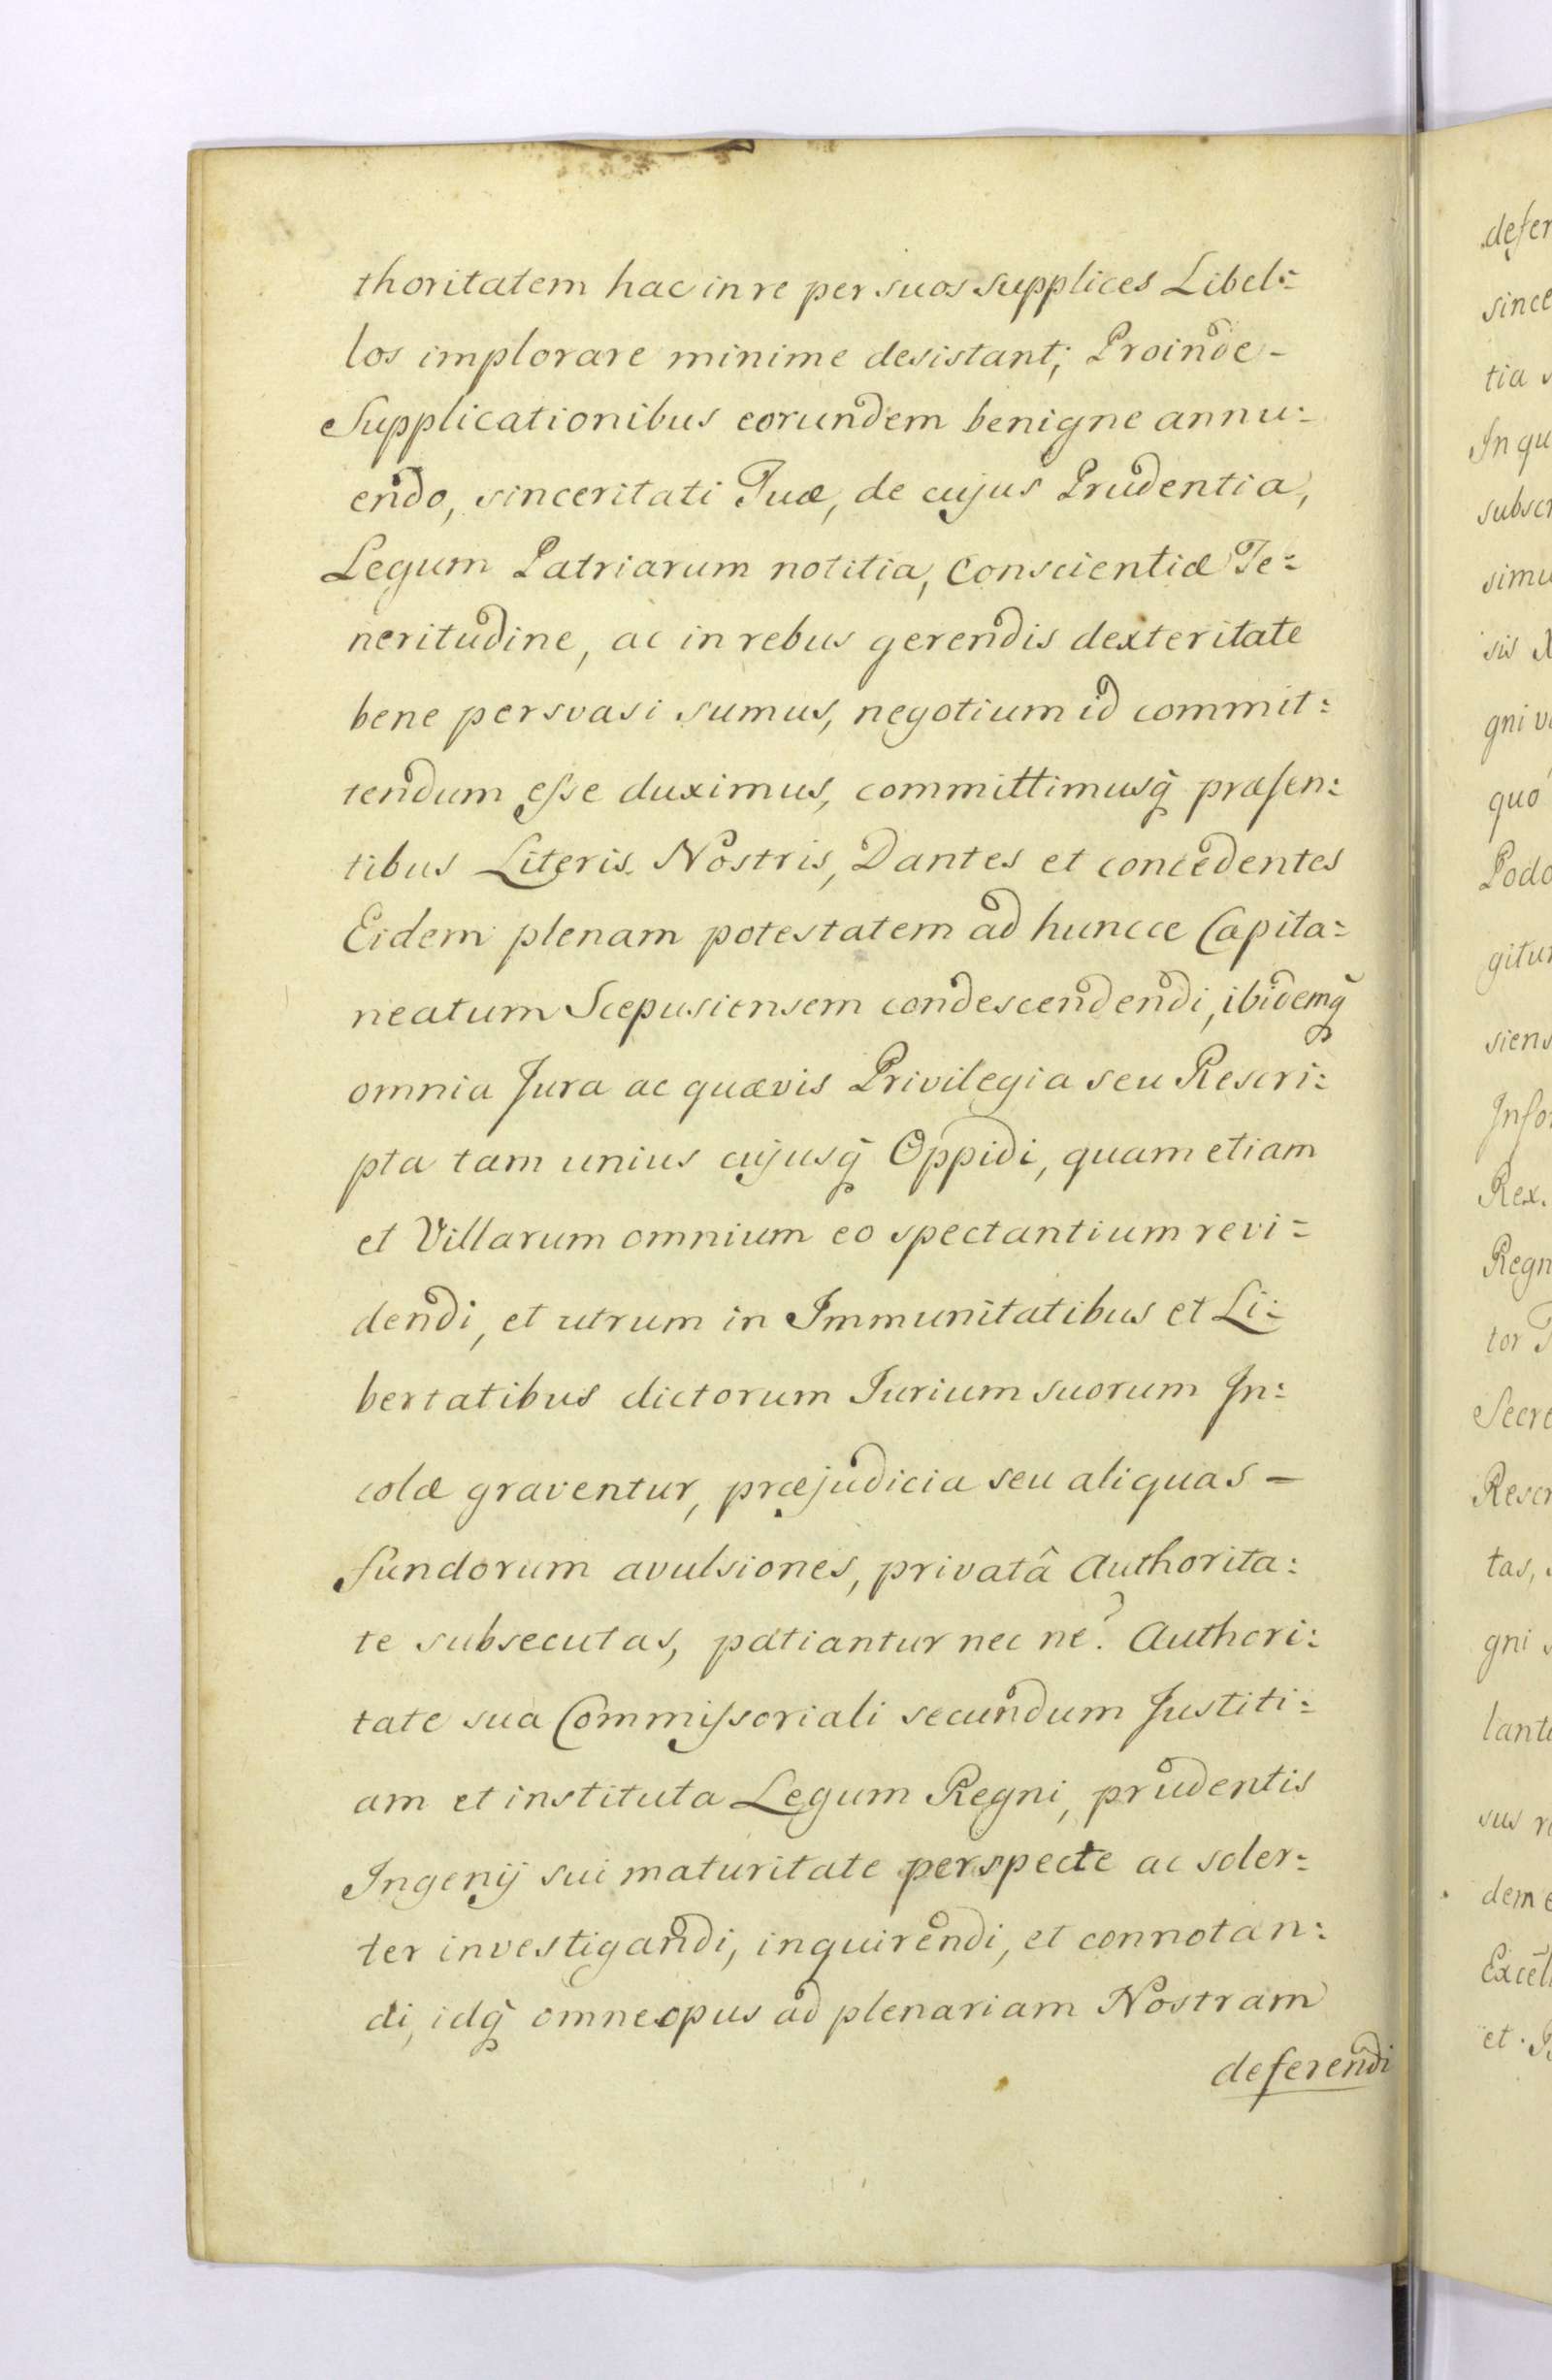 thoritatem hac in re per suos supplices Libel=
los implorare minime desistant; Proinde -
Supplicationibus eorundem benigne annu:
endo, sinceritati Tuæ, de cujus Prudentia,
Legum Patriarum notitia, Conscientiæ Te=
neritudine, ac in rebus gerendis dexteritate
bene persvasi sumus, negotium id commit:
tendum eſse duximus, committimusq̃ præſen:
tibus Literis Nostris, Dantes et concedentes
Eidem plenam potestatem ad huncce Capita=
neatum Scepusiensem condescendendi, ibidemq̃
omnia Jura ac quævis Privilegia seu Rescri:
pta tam unius cujusq̃ Oppidi, quam etiam
et Villarum omnium eo spectantium revi=
dendi, et utrum in Immunitatibus et Li:
bertatibus dictorum Jurium suorum In:
colæ graventur, præjudicia seu aliquas -
fundorum avulsiones, privatâ Authorita:
te subsecutas, patiantur nec ne? Authori:
tate sua Commiſsoriali secundum Justiti:
am et instituta Legum Regni, prudentis
Ingenij sui maturitate perspecte ac soler=
ter investigandi, inquirendi, et connotan:
di, idq̃ omne opus ad plenariam Nostram
deferendi
defer
since
tia
In qu
subscr
simu
sis
gni
quo
Podo
gitur
siens
Infor
Rex.
Regn
tor
Secre
Rescr
tas,
gni
lant
sus
dem
Excel
et